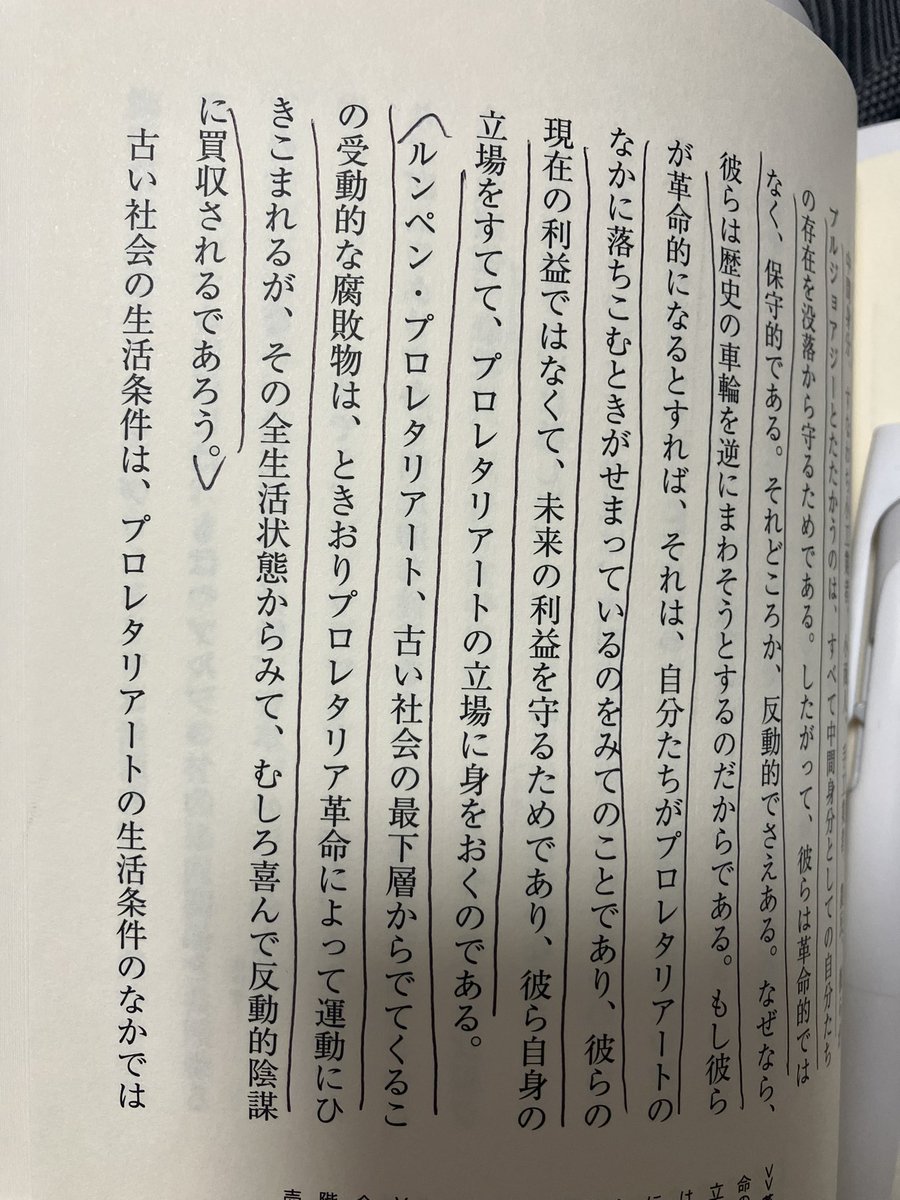 ブルジョアジーとたたかうのは、すべて中間身分としての自分たち
の存在を没落から守るためである。したがって、彼らは革命的では
なく、保守的である。それどころか、反動的でさえある。なぜなら、
彼らは歴史の車輪を逆にまわそうとするのだからである。もし彼ら
が革命的になるとすれば、それは、自分たちがプロレタリアートの
なかに落ちこむときがせまっているのをみてのことであり、彼らの
現在の利益ではなくて、未来の利益を守るためであり、彼ら自身の
立場をすてて、プロレタリアートの立場に身をおくのである。
ルンペン・プロレタリアート、古い社会の最下層からでてくるこ
の受動的な腐敗物は、ときおりプロレタリア革命によって運動にひ
きこまれるが、その全生活状態からみて、むしろ喜んで反動的陰謀
に買収されるであろう。
古い社会の生活条件は、プロレタリアートの生活条件のなかでは